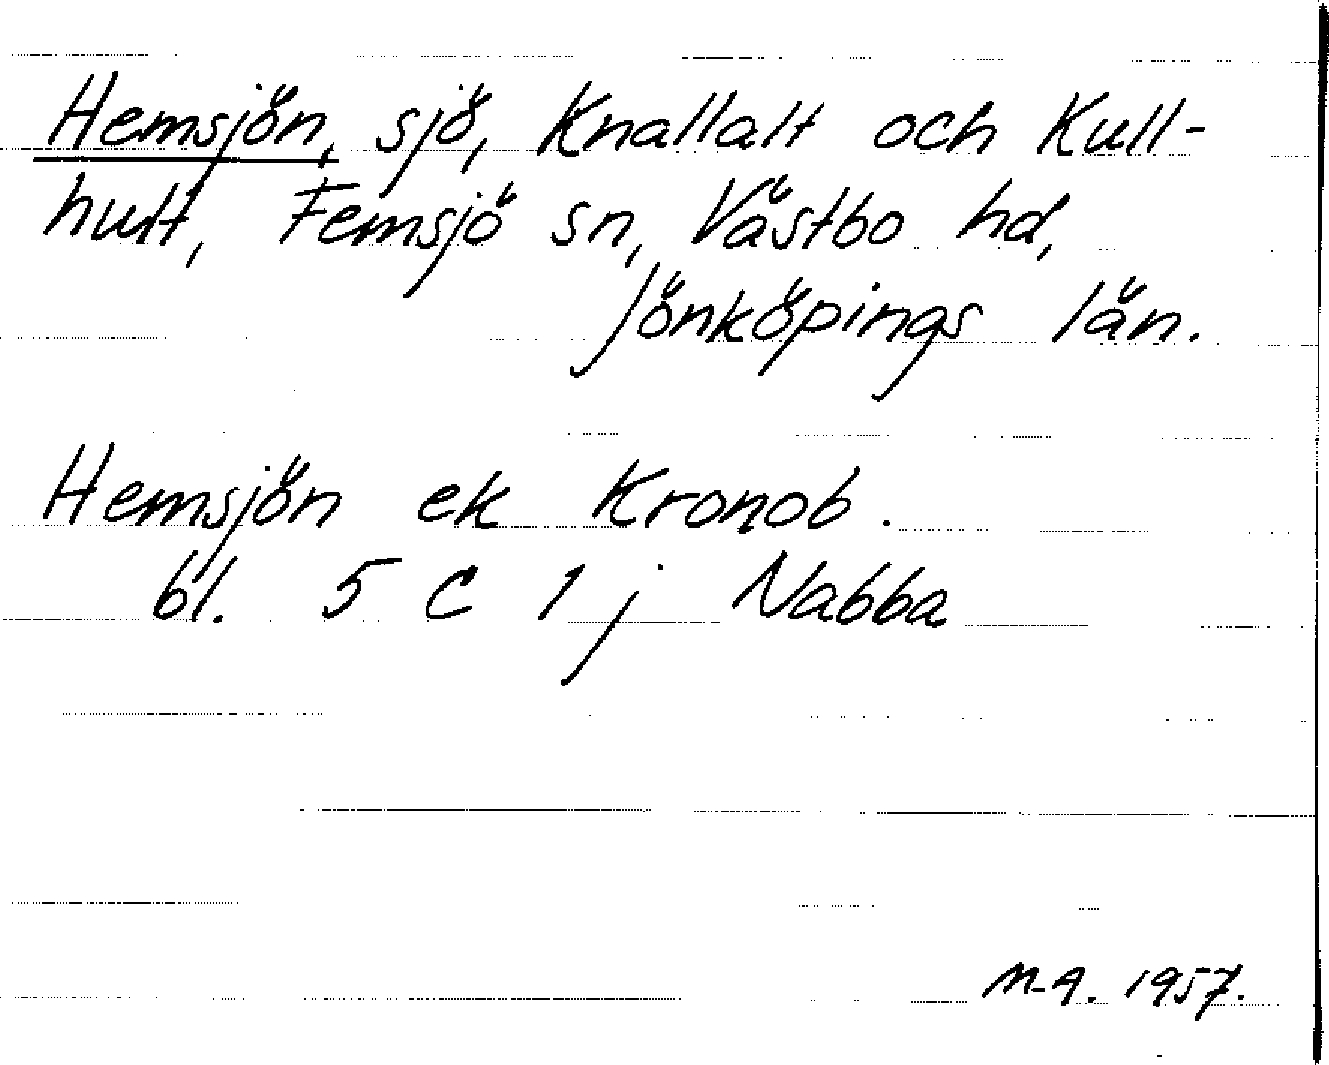 Hemsjön, sjö, Knallalt och Kull-
hult, Femsjö sn, Västbo hd,
Jönköpings län.
Hemsjön ek Kronob.
bl. 5 C 1 j Nabba
M-A. 1957.